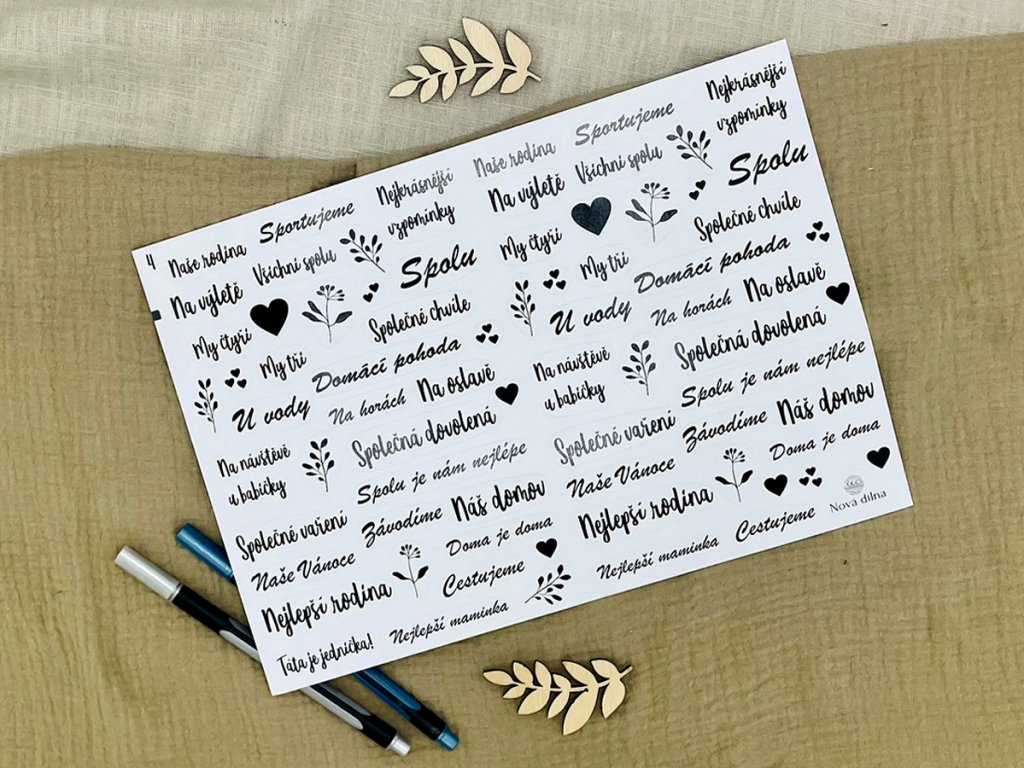 4
Naše rodina
Sportujeme
Nejkrásnější
vzpomínky
Na výletě
Všichni spolu
Spolu
My čtyři
My tři
Společné chvíle
Domácí pohoda
U vody
Na horách
Na oslavě
Na návštěvě
u babičky
Společná dovolená
Spolu je nám nejlépe
Společné vaření
Závodíme
Náš domov
Naše Vánoce
Doma je doma
Nejlepší rodina
Cestujeme
Táta je jednička!
Nejlepší maminka
Naše rodina
Sportujeme
Nejkrásnější
vzpomínky
Na výletě
Všichni spolu
Spolu
My čtyři
My tři
Společné chvíle
Domácí pohoda
U vody
Na horách
Na oslavě
Na návštěvě
u babičky
Společná dovolená
Spolu je nám nejlépe
Společné vaření
Závodíme
Náš domov
Naše Vánoce
Doma je doma
Nejlepší rodina
Cestujeme
Nejlepší maminka
Nová dílna